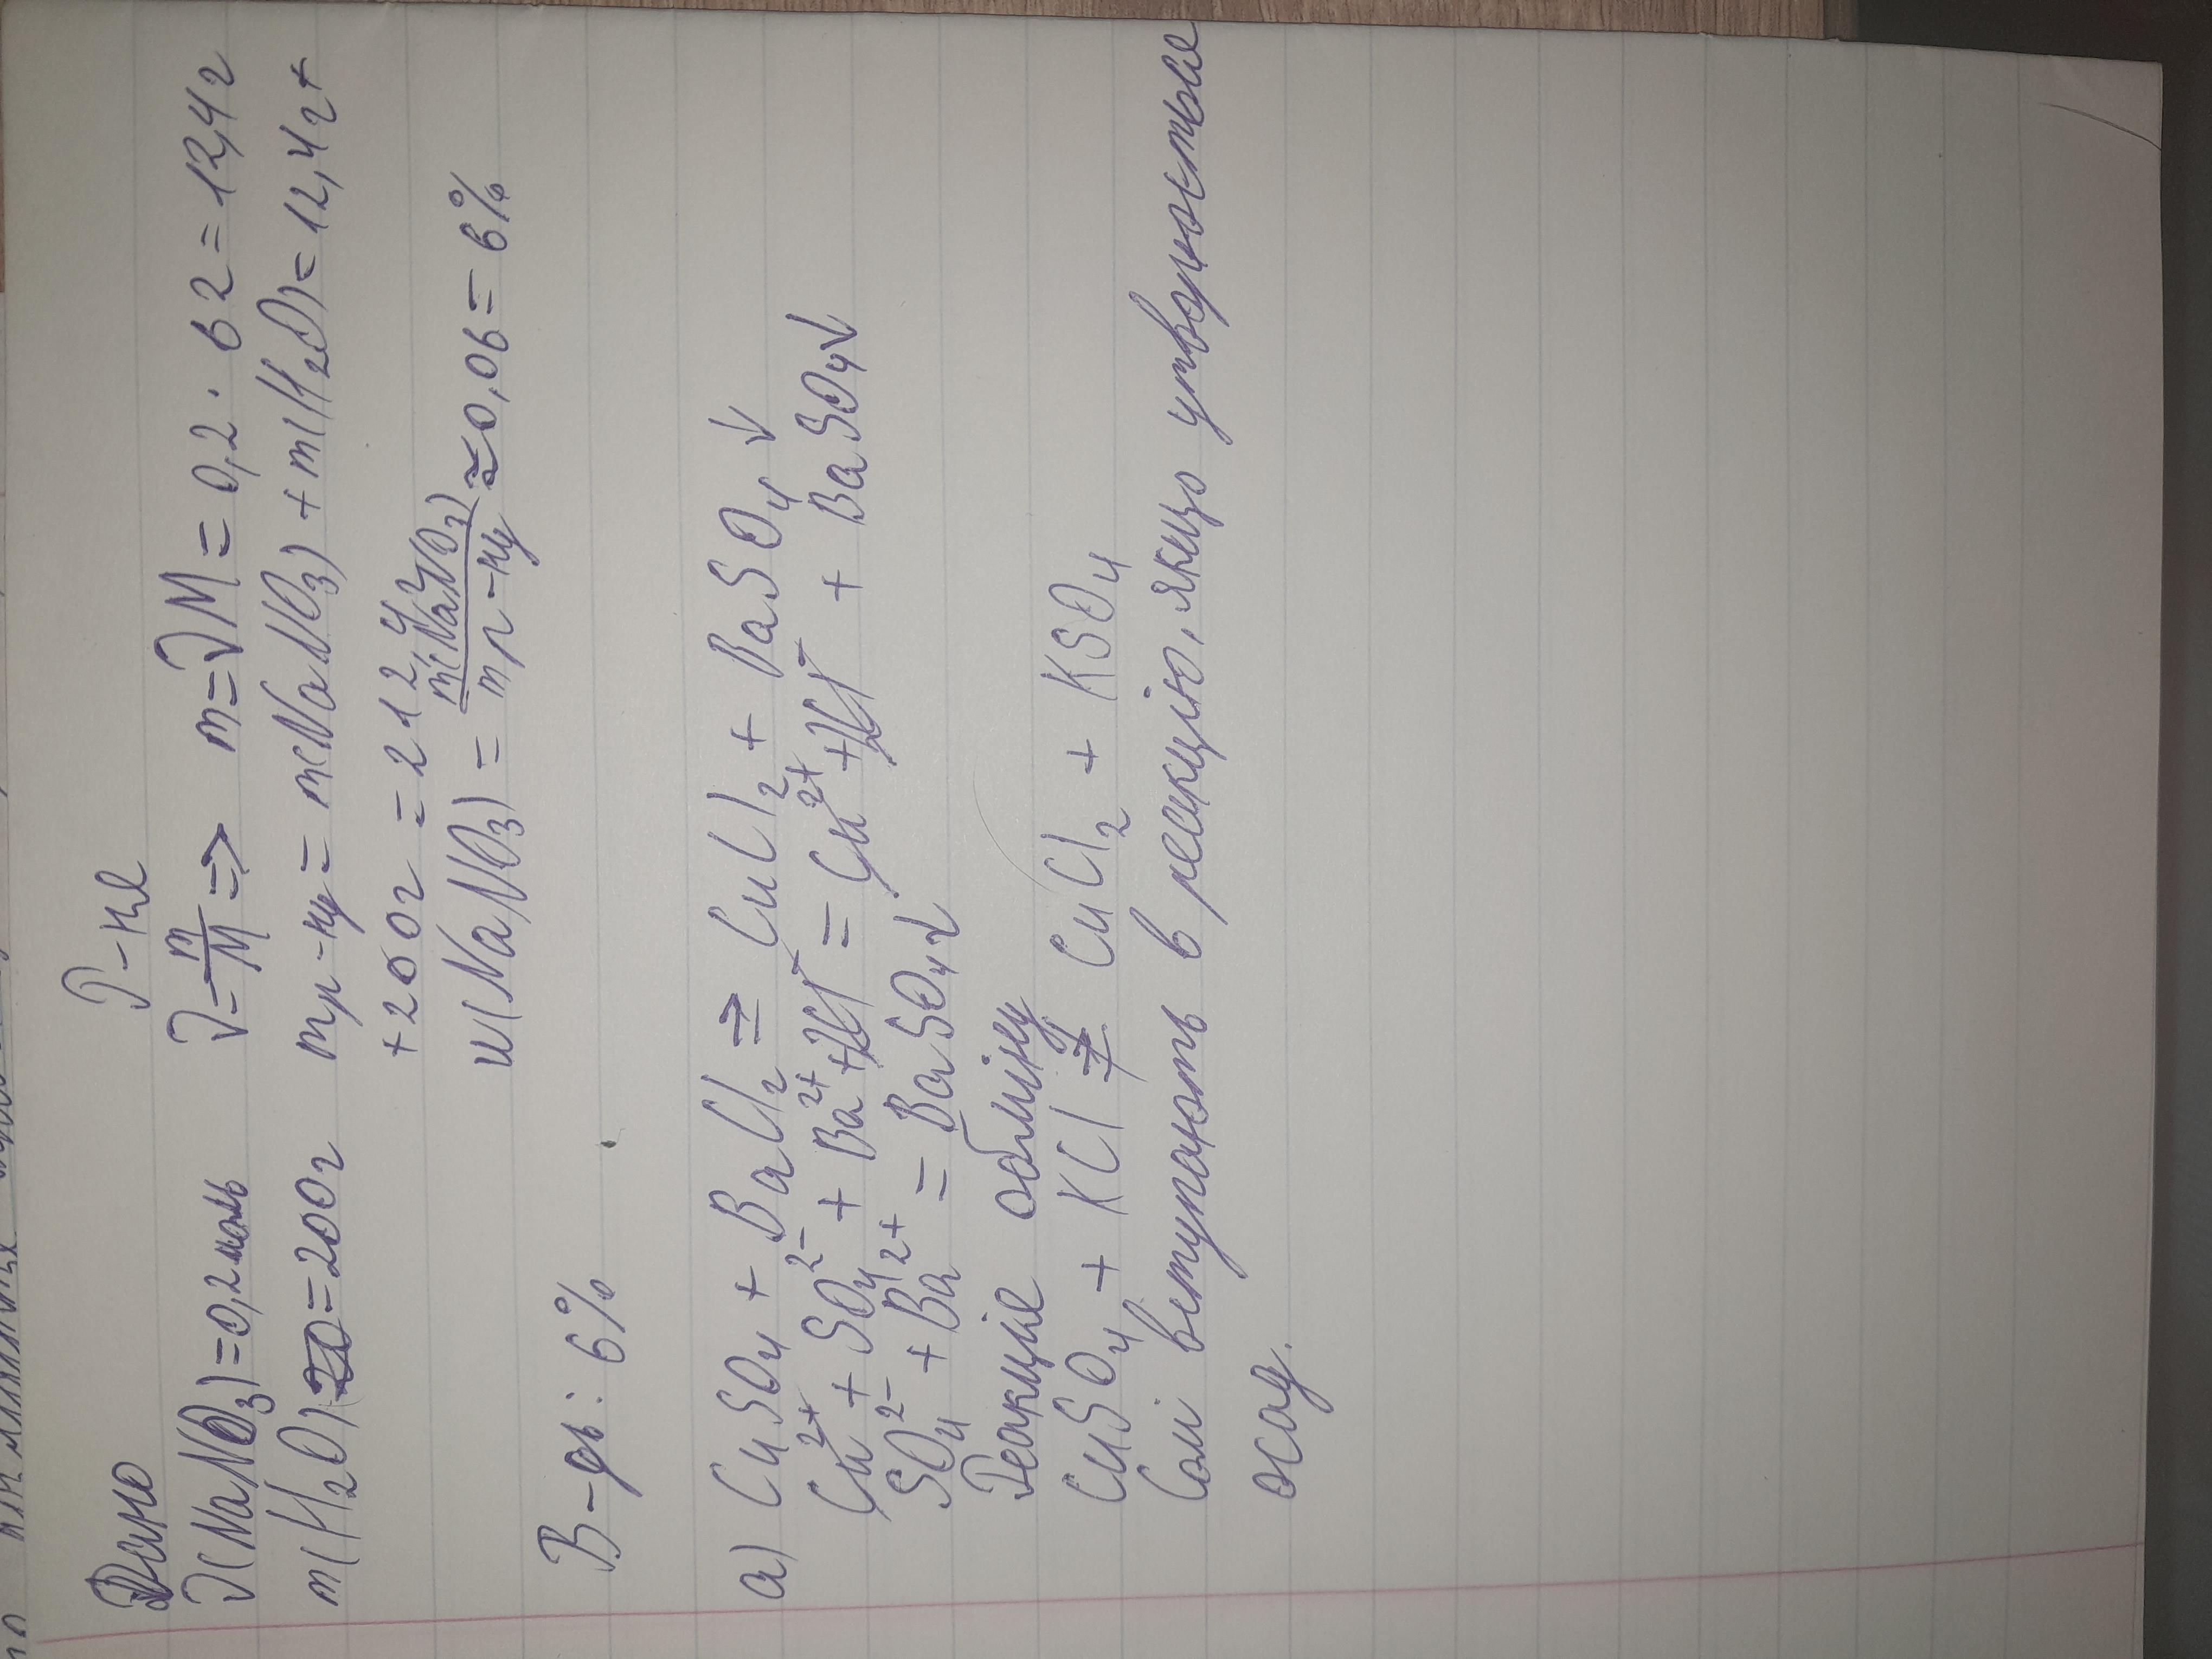 Дано
Р-ня
ν(NaNO₃)=0,2моль
ν=m/M => m=νM=0,2·62=12,4г
m(H₂O)=200г
mр-ну=m(NaNO₃)+m(H₂O)=12,4г+
+200г=212,4г
w(NaNO₃)=m(NaNO₃)/mр-ну≈0,06=6%
В-дь: 6%
а) CuSO₄ + BaCl₂ => CuCl₂ + BaSO₄↓
Cu²⁺+SO₄²⁻+Ba²⁺+2Cl⁻=Cu²⁺+2Cl⁻ + BaSO₄↓
SO₄²⁻+Ba²⁺=BaSO₄↓
Реакція обміну
CuSO₄ + KCl ≠ CuCl₂ + KSO₄
Солі вступають в реакцію, якщо утворюється
осад.